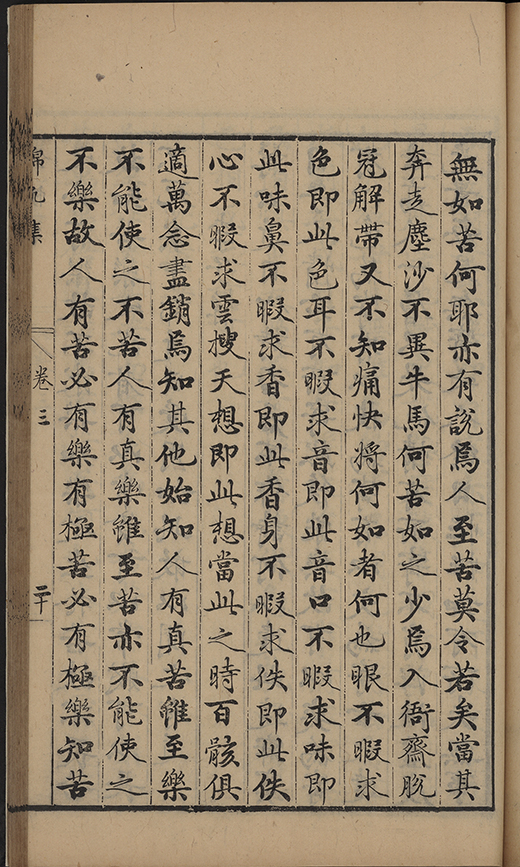 無如苦何耶亦有說焉人至苦莫令若矣當其
奔走塵沙不異牛馬何苦如之少焉入衙齋脫
冠解帶又不知痛快將何如者何也眼不暇求
色即此色耳不暇求音即此音口不暇求味即
此味鼻不暇求香即此香身不暇求佚即此佚
心不暇求雲搜天想即此想當此之時百骸俱
適萬念盡銷焉知其他始知人有真苦雖至樂
不能使之不苦人有真樂雖至苦亦不能使之
不樂故人有苦必有樂有極苦必有極樂知苦
錦帆集
卷三
二十